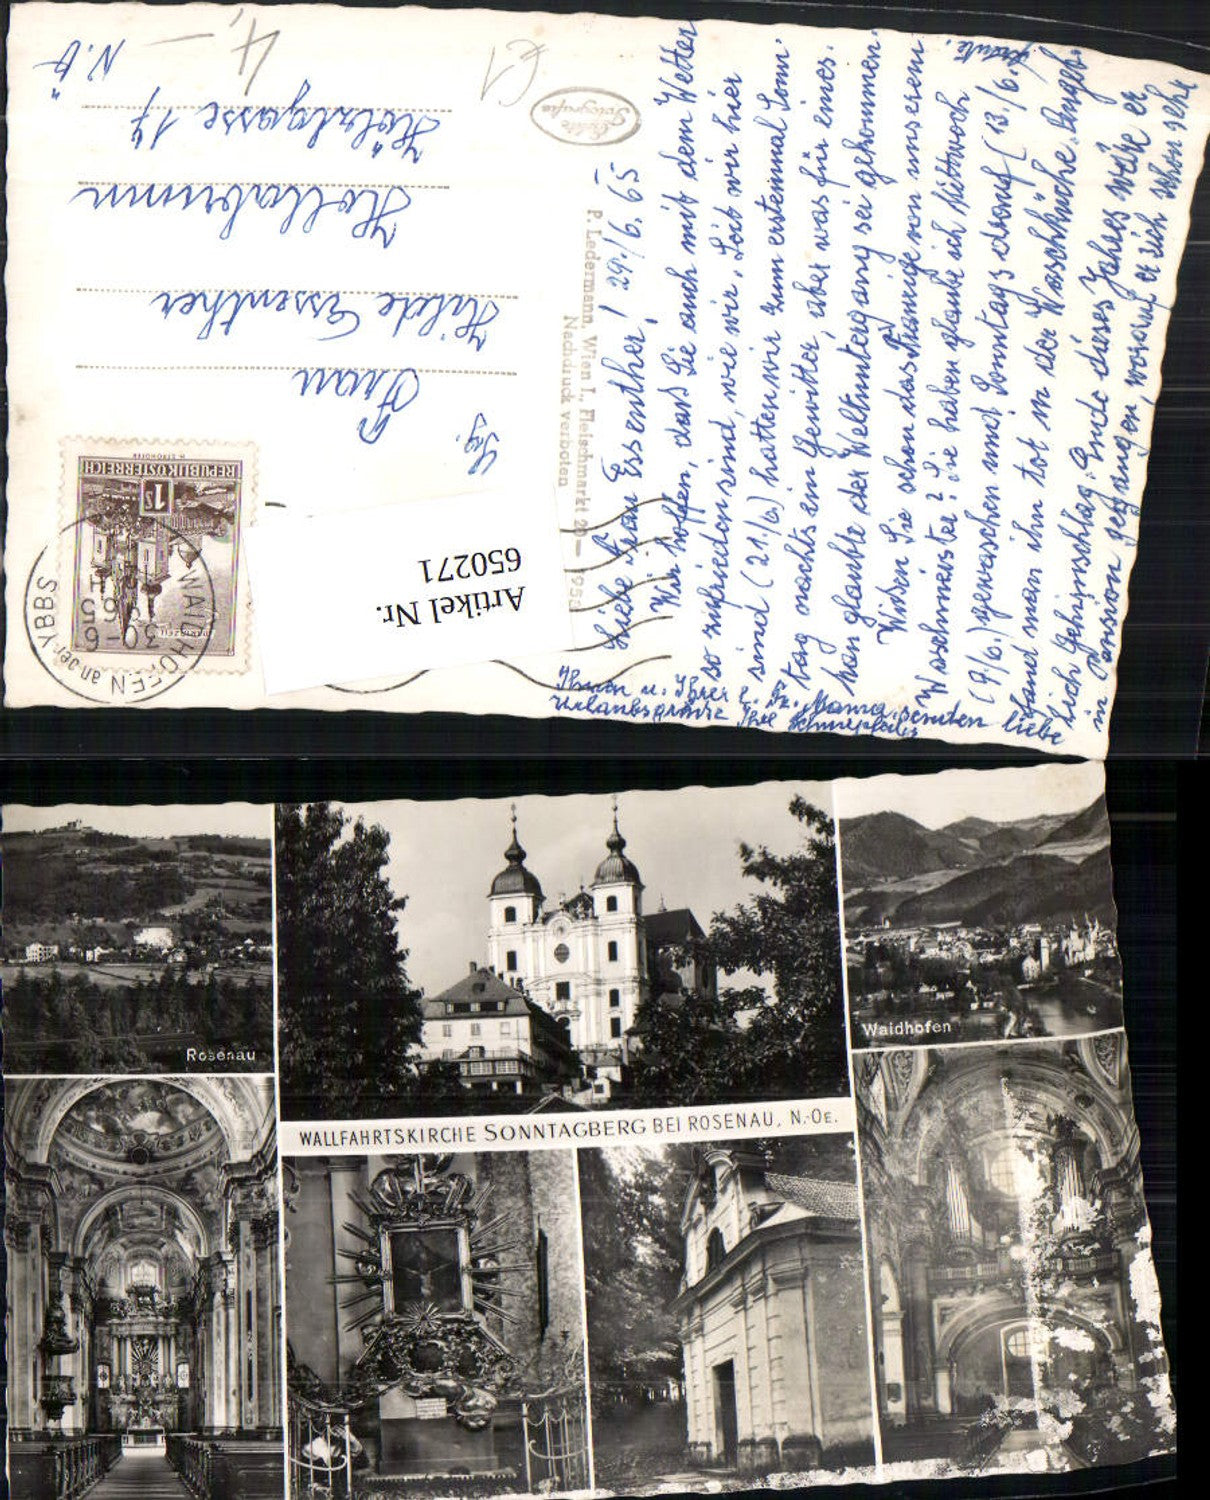 Liebe Frau Essenther! 29./6.65
Wir hoffen, daß Sie auch mit dem Wetter
so zufrieden sind, wie wir. Seit wir hier
sind (21./6.) hatten wir zum erstenmal Sonn-
tag nachts ein Gewitter, aber was für eines.
Man glaubte der Weltuntergang sei gekommen.
Wissen Sie schon das Traurige von unserem
Waschmeister? Sie haben glaube ich Mittwoch
(9./6.) gewaschen und Sonntags drauf (13./6.)
fand man ihn tot in der Waschküche. Angeb-
lich Gehirnschlag. Ende dieses Jahres wäre er
in Pension gegangen, worauf er sich schon sehr
freute.
Ihnen u. Ihrer l. Fr. Mama senden liebe
Urlaubsgrüße Ihre
P. Ledermann, Wien I., Fleischmarkt 20 — 1958
Nachdruck verboten
Echte
Fotografie
€1
4,–
Sg.
Frau
Hilde Essenther
Hollabrunn
Hölzlgasse 14
N.Ö
REPUBLIK ÖSTERREICH
1S
WAIDHOFEN an der YBBS
30. 6. 65
Artikel Nr.
650271
Rosenau
Waidhofen
WALLFAHRTSKIRCHE SONNTAGBERG BEI ROSENAU, N.-OE.